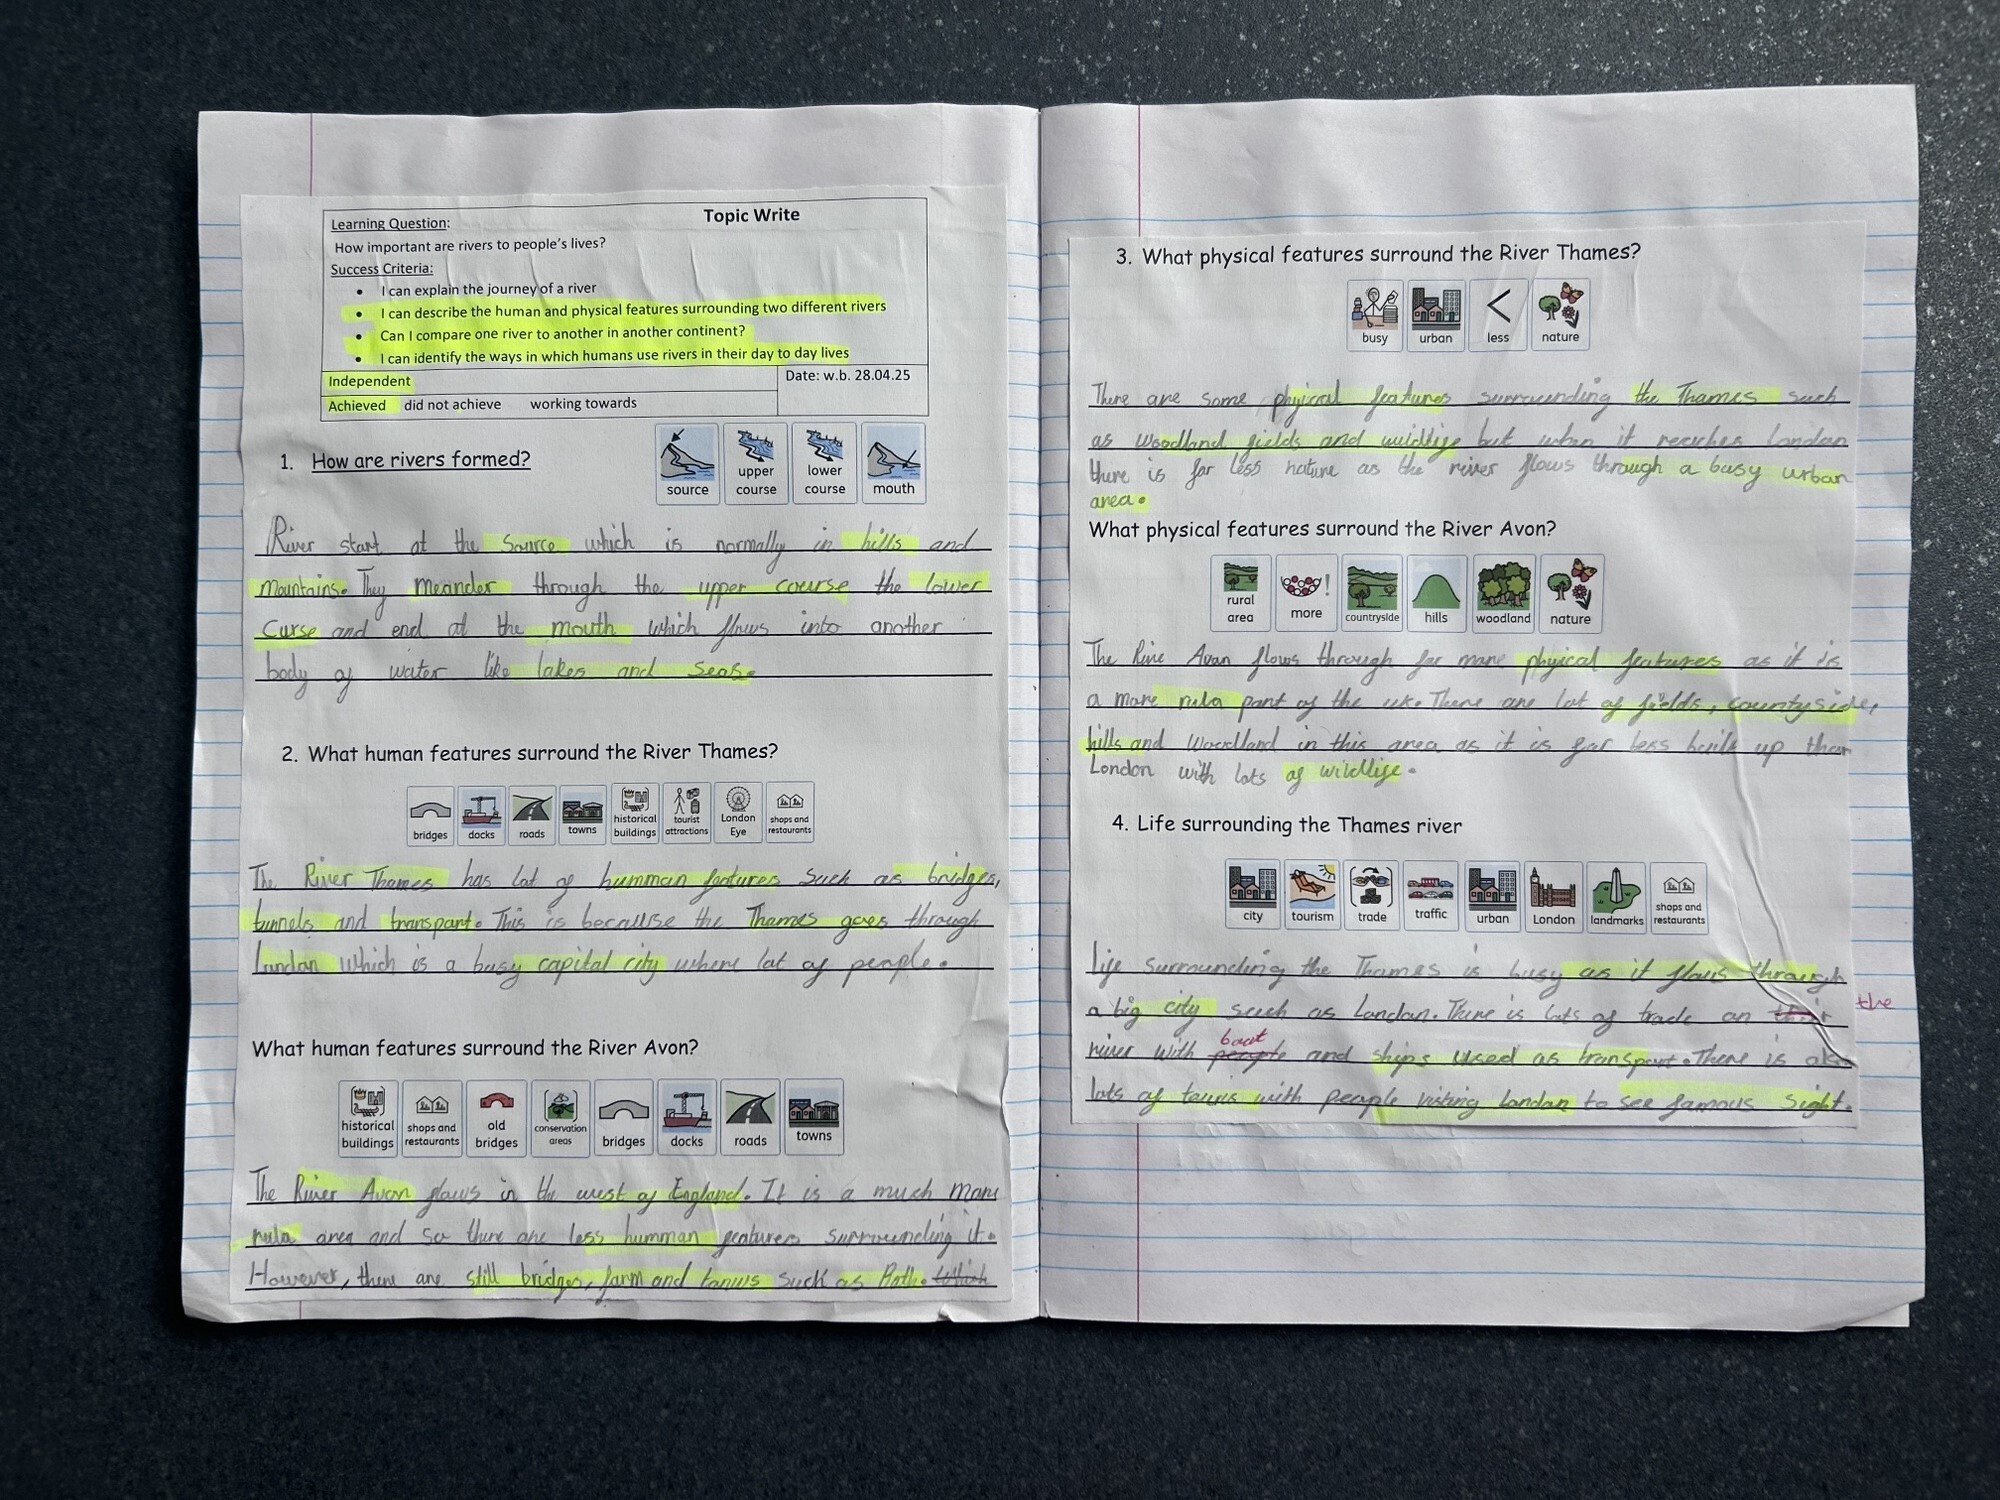 Topic Write
Learning Question:
How important are rivers to people's lives?
Success Criteria:
• I can explain the journey of a river
• I can describe the human and physical features surrounding two different rivers
• Can I compare one river to another in another continent?
• I can identify the ways in which humans use rivers in their day to day lives
Independent
Date: w.b. 28.04.25
Achieved did not achieve working towards
1. How are rivers formed?
source upper course lower course mouth
River start at the source which is normally in hills and
mountains. They meander through the upper course the lower
curse and end at the mouth which flows into another
body of water like lakes and seas.
2. What human features surround the River Thames?
bridges docks roads towns historical buildings tourist attractions London Eye shops and restaurants
The River Thames has lot of humman features such as bridges,
tunnels and transpart. This is becausse the Thames goes through
Landan which is a busy capital city where lat of people.
What human features surround the River Avon?
historical buildings shops and restaurants old bridges conservation areas bridges docks roads towns
The River Avan flows in the west of England. It is a much mare
rula area and so there are less humman features surrounding it.
However, there are still bridges, farm and tanws such as Bath. which
3. What physical features surround the River Thames?
busy urban less nature
There are some phyical features surrounding the Thames such
as woodland fields and wildlife but when it reaches London
there is far less nature as the river flows through a busy urban
area.
What physical features surround the River Avon?
rural area more ! countryside hills woodland nature
The Rive Avan flows through far mare phyical features as it is
a mare rula part of the uk. There are lat of fields, countyside,
hills and woodland in this area as it is far less built up than
London with lots of wildlife.
4. Life surrounding the Thames river
city tourism trade traffic urban London landmarks shops and restaurants
Life surrounding the Thames is busy as it flows through
a big city such as Landan. There is lots of trade an their the
river with people boat and ships used as transport. There is also
lots of touris with people visting landan to see famous sight.